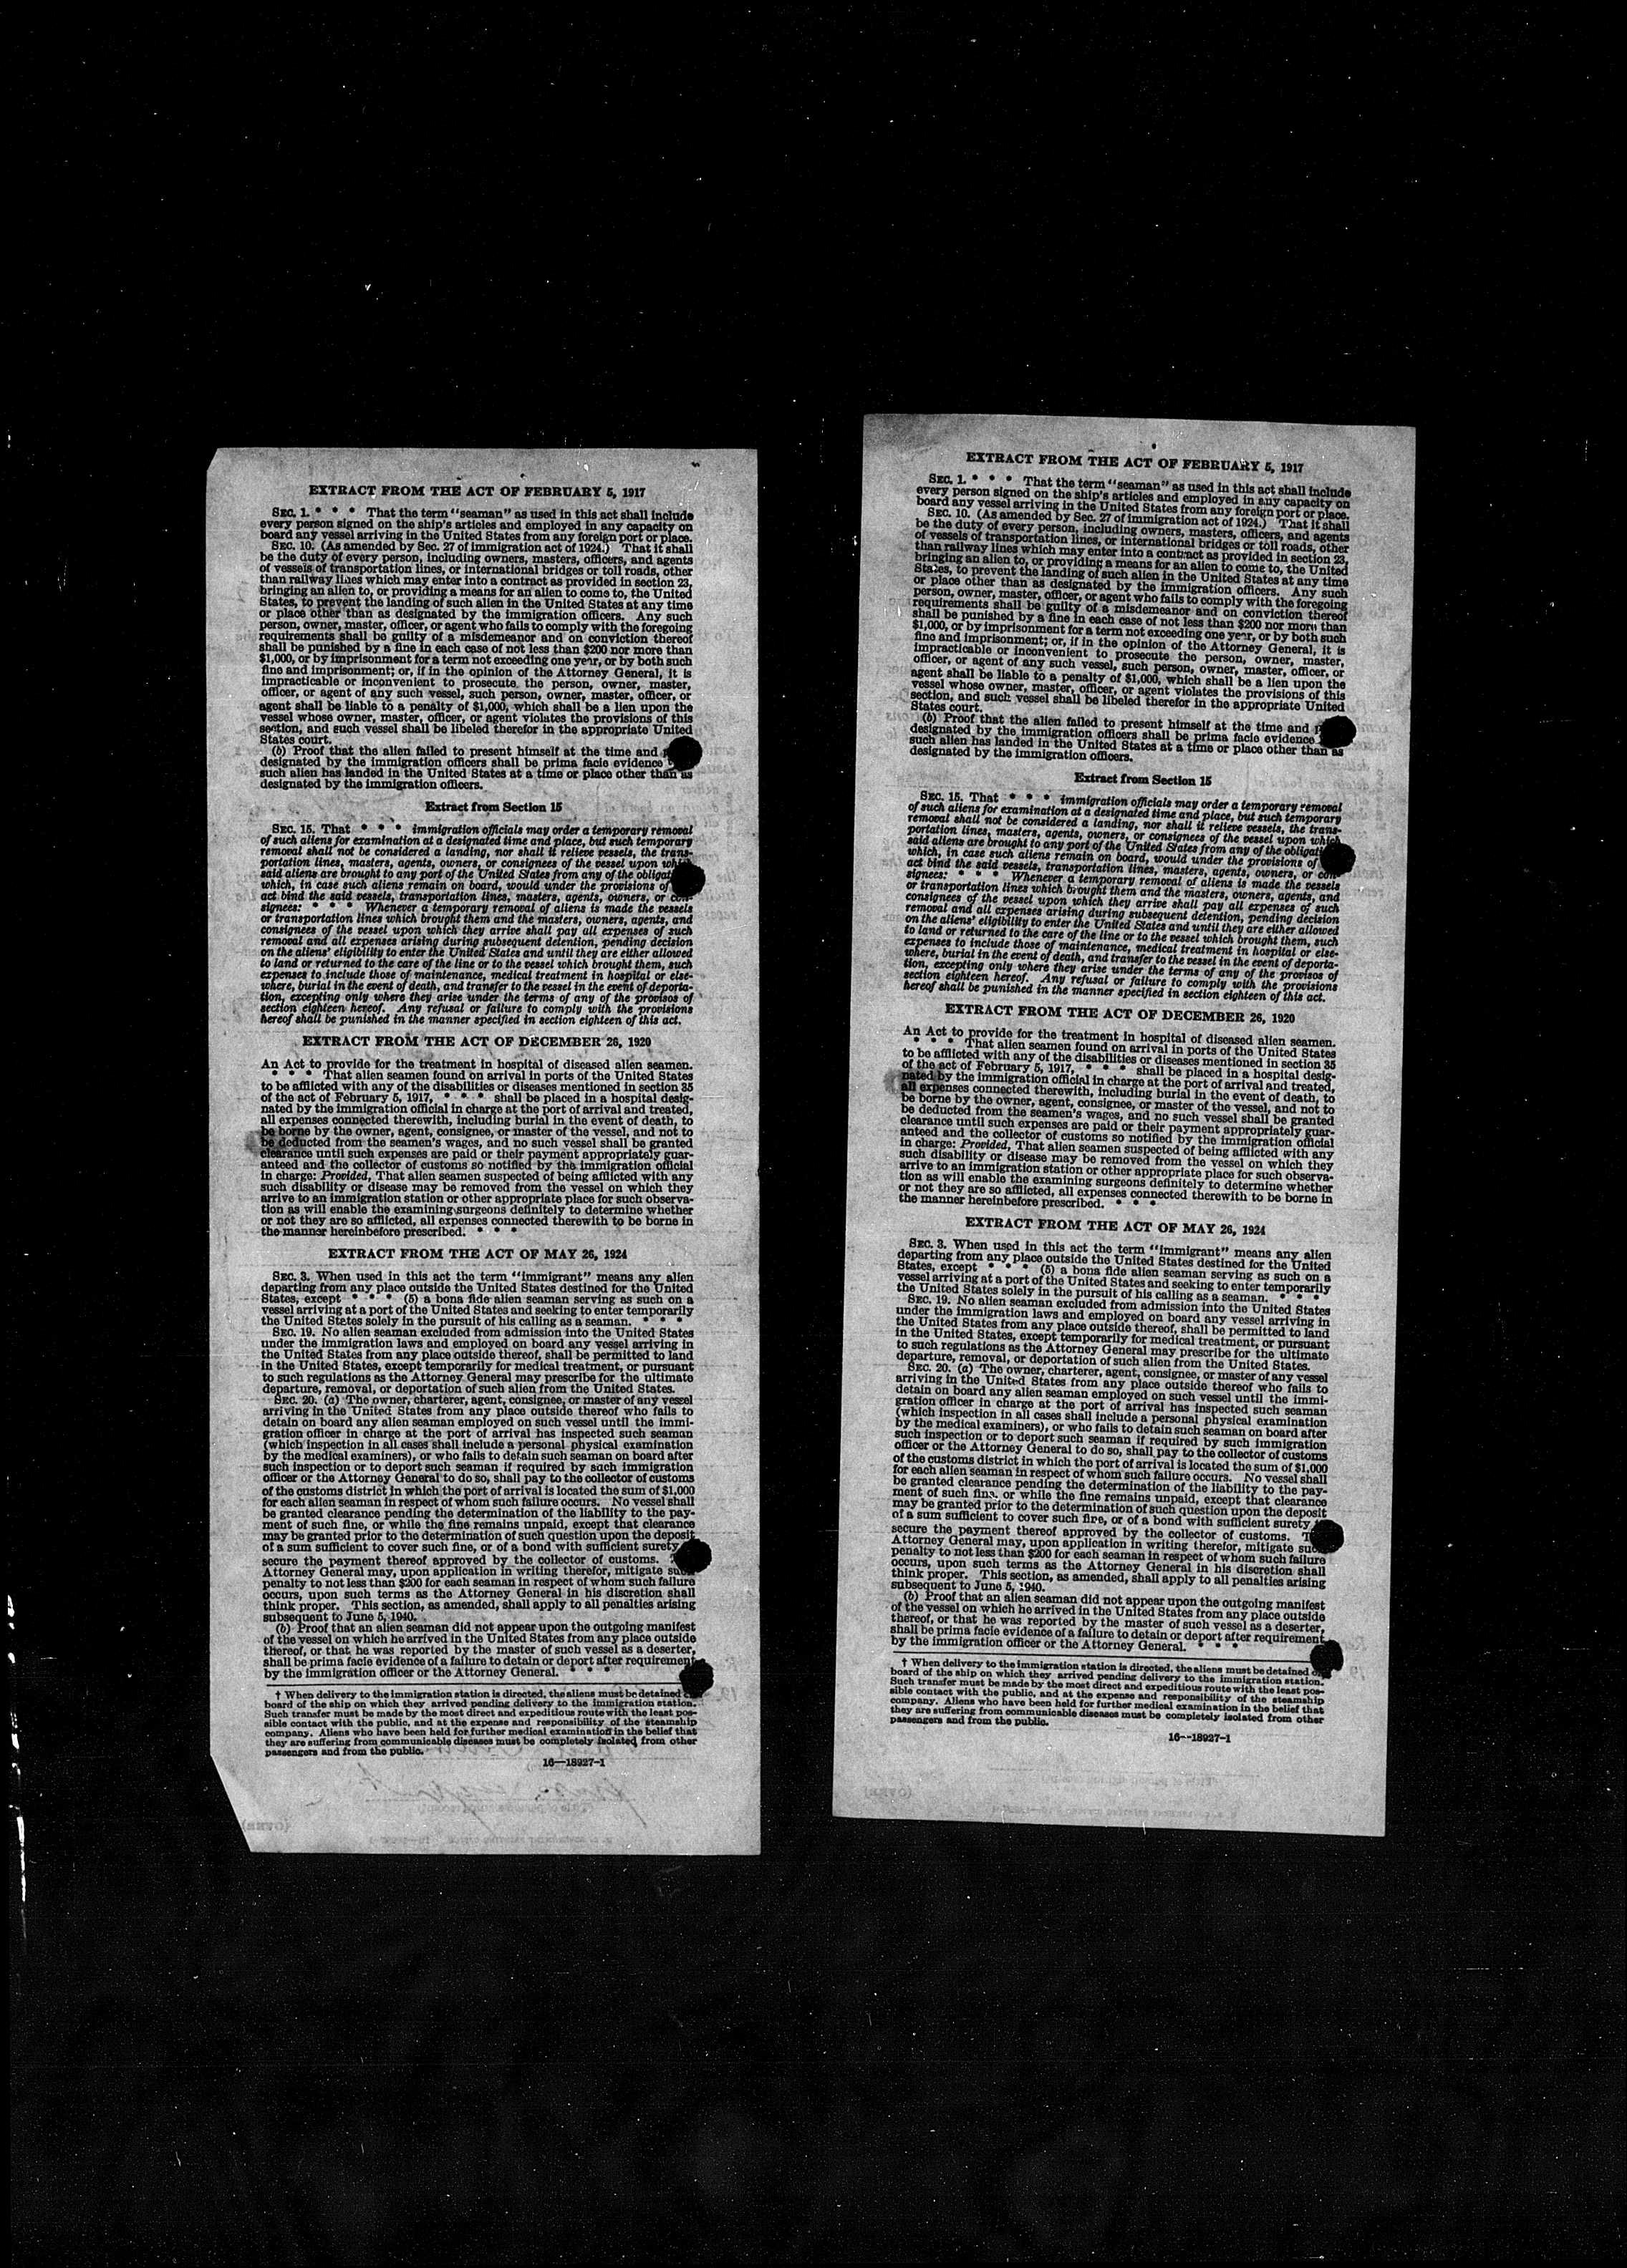 EXTRACT FROM THE ACT OF FEBRUARY 5, 1917
SEC. 1. * * * That the term "seaman" as used in this act shall include
every person signed on the ship's articles and employed in any capacity on
board any vessel arriving in the United States from any foreign port or place.
SEC. 10. (As amended by Sec. 27 of immigration act of 1924.) That it shall
be the duty of every person, including owners, masters, officers, and agents
of vessels of transportation lines, or international bridges or toll roads, other
than railway lines which may enter into a contract as provided in section 23,
bringing an alien to, or providing a means for an alien to come to, the United
States, to prevent the landing of such alien in the United States at any time
or place other than as designated by the immigration officers. Any such
person, owner, master, officer, or agent who fails to comply with the foregoing
requirements shall be guilty of a misdemeanor and on conviction thereof
shall be punished by a fine in each case of not less than $200 nor more than
$1,000, or by imprisonment for a term not exceeding one year, or by both such
fine and imprisonment; or, if in the opinion of the Attorney General, it is
impracticable or inconvenient to prosecute the person, owner, master,
officer, or agent of any such vessel, such person, owner, master, officer, or
agent shall be liable to a penalty of $1,000, which shall be a lien upon the
vessel whose owner, master, officer, or agent violates the provisions of this
section, and such vessel shall be libeled therefor in the appropriate United
States court.
(b) Proof that the alien failed to present himself at the time and
designated by the immigration officers shall be prima facie evidence
such alien has landed in the United States at a time or place other than as
designated by the immigration officers.
Extract from Section 15
SEC. 15. That * * * immigration officials may order a temporary removal
of such aliens for examination at a designated time and place, but such temporary
removal shall not be considered a landing, nor shall it relieve vessels, the trans-
portation lines, masters, agents, owners, or consignees of the vessel upon which
said aliens are brought to any port of the United States from any of the obligat
which, in case such aliens remain on board, would under the provisions of
act bind the said vessels, transportation lines, masters, agents, owners, or con-
signees: * * * Whenever a temporary removal of aliens is made the vessels
or transportation lines which brought them and the masters, owners, agents, and
consignees of the vessel upon which they arrive shall pay all expenses of such
removal and all expenses arising during subsequent detention, pending decision
on the aliens' eligibility to enter the United States and until they are either allowed
to land or returned to the care of the line or to the vessel which brought them, such
expenses to include those of maintenance, medical treatment in hospital or else-
where, burial in the event of death, and transfer to the vessel in the event of deporta-
tion, excepting only where they arise under the terms of any of the provisos of
section eighteen hereof. Any refusal or failure to comply with the provisions
hereof shall be punished in the manner specified in section eighteen of this act.
EXTRACT FROM THE ACT OF DECEMBER 26, 1920
An Act to provide for the treatment in hospital of diseased alien seamen.
* * * That alien seamen found on arrival in ports of the United States
to be afflicted with any of the disabilities or diseases mentioned in section 35
of the act of February 5, 1917, * * * shall be placed in a hospital desig-
nated by the immigration official in charge at the port of arrival and treated,
all expenses connected therewith, including burial in the event of death, to
be borne by the owner, agent, consignee, or master of the vessel, and not to
be deducted from the seamen's wages, and no such vessel shall be granted
clearance until such expenses are paid or their payment appropriately guar-
anteed and the collector of customs so notified by the immigration official
in charge: Provided, That alien seamen suspected of being afflicted with any
such disability or disease may be removed from the vessel on which they
arrive to an immigration station or other appropriate place for such observa-
tion as will enable the examining surgeons definitely to determine whether
or not they are so afflicted, all expenses connected therewith to be borne in
the manner hereinbefore prescribed. * * *
EXTRACT FROM THE ACT OF MAY 26, 1924
SEC. 3. When used in this act the term "immigrant" means any alien
departing from any place outside the United States destined for the United
States, except * * * (5) a bona fide alien seaman serving as such on a
vessel arriving at a port of the United States and seeking to enter temporarily
the United States solely in the pursuit of his calling as a seaman. * * *
SEC. 19. No alien seaman excluded from admission into the United States
under the immigration laws and employed on board any vessel arriving in
the United States from any place outside thereof, shall be permitted to land
in the United States, except temporarily for medical treatment, or pursuant
to such regulations as the Attorney General may prescribe for the ultimate
departure, removal, or deportation of such alien from the United States.
SEC. 20. (a) The owner, charterer, agent, consignee, or master of any vessel
arriving in the United States from any place outside thereof who fails to
detain on board any alien seaman employed on such vessel until the immi-
gration officer in charge at the port of arrival has inspected such seaman
(which inspection in all cases shall include a personal physical examination
by the medical examiners), or who fails to detain such seaman on board after
such inspection or to deport such seaman if required by such immigration
officer or the Attorney General to do so, shall pay to the collector of customs
of the customs district in which the port of arrival is located the sum of $1,000
for each alien seaman in respect of whom such failure occurs. No vessel shall
be granted clearance pending the determination of the liability to the pay-
ment of such fine, or while the fine remains unpaid, except that clearance
may be granted prior to the determination of such question upon the deposit
of a sum sufficient to cover such fine, or of a bond with sufficient surety
secure the payment thereof approved by the collector of customs.
Attorney General may, upon application in writing therefor, mitigate such
penalty to not less than $200 for each seaman in respect of whom such failure
occurs, upon such terms as the Attorney General in his discretion shall
think proper. This section, as amended, shall apply to all penalties arising
subsequent to June 5, 1940.
(b) Proof that an alien seaman did not appear upon the outgoing manifest
of the vessel on which he arrived in the United States from any place outside
thereof, or that he was reported by the master of such vessel as a deserter,
shall be prima facie evidence of a failure to detain or deport after requirement
by the immigration officer or the Attorney General. * * *
† When delivery to the immigration station is directed, the aliens must be detained
board of the ship on which they arrived pending delivery to the immigration station.
Such transfer must be made by the most direct and expeditious route with the least pos-
sible contact with the public, and at the expense and responsibility of the steamship
company. Aliens who have been held for further medical examination in the belief that
they are suffering from communicable diseases must be completely isolated from other
passengers and from the public.
16—18927-1
EXTRACT FROM THE ACT OF FEBRUARY 5, 1917
SEC. 1. * * * That the term "seaman" as used in this act shall include
every person signed on the ship's articles and employed in any capacity on
board any vessel arriving in the United States from any foreign port or place.
SEC. 10. (As amended by Sec. 27 of immigration act of 1924.) That it shall
be the duty of every person, including owners, masters, officers, and agents
of vessels of transportation lines, or international bridges or toll roads, other
than railway lines which may enter into a contract as provided in section 23,
bringing an alien to, or providing a means for an alien to come to, the United
States, to prevent the landing of such alien in the United States at any time
or place other than as designated by the immigration officers. Any such
person, owner, master, officer, or agent who fails to comply with the foregoing
requirements shall be guilty of a misdemeanor and on conviction thereof
shall be punished by a fine in each case of not less than $200 nor more than
$1,000, or by imprisonment for a term not exceeding one year, or by both such
fine and imprisonment; or, if in the opinion of the Attorney General, it is
impracticable or inconvenient to prosecute the person, owner, master,
officer, or agent of any such vessel, such person, owner, master, officer, or
agent shall be liable to a penalty of $1,000, which shall be a lien upon the
vessel whose owner, master, officer, or agent violates the provisions of this
section, and such vessel shall be libeled therefor in the appropriate United
States court.
(b) Proof that the alien failed to present himself at the time and
designated by the immigration officers shall be prima facie evidence
such alien has landed in the United States at a time or place other than as
designated by the immigration officers.
Extract from Section 15
SEC. 15. That * * * immigration officials may order a temporary removal
of such aliens for examination at a designated time and place, but such temporary
removal shall not be considered a landing, nor shall it relieve vessels, the trans-
portation lines, masters, agents, owners, or consignees of the vessel upon which
said aliens are brought to any port of the United States from any of the obligati
which, in case such aliens remain on board, would under the provisions of
act bind the said vessels, transportation lines, masters, agents, owners, or con-
signees: * * * Whenever a temporary removal of aliens is made the vessels
or transportation lines which brought them and the masters, owners, agents, and
consignees of the vessel upon which they arrive shall pay all expenses of such
removal and all expenses arising during subsequent detention, pending decision
on the aliens' eligibility to enter the United States and until they are either allowed
to land or returned to the care of the line or to the vessel which brought them, such
expenses to include those of maintenance, medical treatment in hospital or else-
where, burial in the event of death, and transfer to the vessel in the event of deporta-
tion, excepting only where they arise under the terms of any of the provisos of
section eighteen hereof. Any refusal or failure to comply with the provisions
hereof shall be punished in the manner specified in section eighteen of this act.
EXTRACT FROM THE ACT OF DECEMBER 26, 1920
An Act to provide for the treatment in hospital of diseased alien seamen.
* * * That alien seamen found on arrival in ports of the United States
to be afflicted with any of the disabilities or diseases mentioned in section 35
of the act of February 5, 1917, * * * shall be placed in a hospital desig-
nated by the immigration official in charge at the port of arrival and treated,
all expenses connected therewith, including burial in the event of death, to
be borne by the owner, agent, consignee, or master of the vessel, and not to
be deducted from the seamen's wages, and no such vessel shall be granted
clearance until such expenses are paid or their payment appropriately guar-
anteed and the collector of customs so notified by the immigration official
in charge: Provided, That alien seamen suspected of being afflicted with any
such disability or disease may be removed from the vessel on which they
arrive to an immigration station or other appropriate place for such observa-
tion as will enable the examining surgeons definitely to determine whether
or not they are so afflicted, all expenses connected therewith to be borne in
the manner hereinbefore prescribed. * * *
EXTRACT FROM THE ACT OF MAY 26, 1924
SEC. 3. When used in this act the term "immigrant" means any alien
departing from any place outside the United States destined for the United
States, except * * * (5) a bona fide alien seaman serving as such on a
vessel arriving at a port of the United States and seeking to enter temporarily
the United States solely in the pursuit of his calling as a seaman. * * *
SEC. 19. No alien seaman excluded from admission into the United States
under the immigration laws and employed on board any vessel arriving in
the United States from any place outside thereof, shall be permitted to land
in the United States, except temporarily for medical treatment, or pursuant
to such regulations as the Attorney General may prescribe for the ultimate
departure, removal, or deportation of such alien from the United States.
SEC. 20. (a) The owner, charterer, agent, consignee, or master of any vessel
arriving in the United States from any place outside thereof who fails to
detain on board any alien seaman employed on such vessel until the immi-
gration officer in charge at the port of arrival has inspected such seaman
(which inspection in all cases shall include a personal physical examination
by the medical examiners), or who fails to detain such seaman on board after
such inspection or to deport such seaman if required by such immigration
officer or the Attorney General to do so, shall pay to the collector of customs
of the customs district in which the port of arrival is located the sum of $1,000
for each alien seaman in respect of whom such failure occurs. No vessel shall
be granted clearance pending the determination of the liability to the pay-
ment of such fine, or while the fine remains unpaid, except that clearance
may be granted prior to the determination of such question upon the deposit
of a sum sufficient to cover such fine, or of a bond with sufficient surety
secure the payment thereof approved by the collector of customs.
Attorney General may, upon application in writing therefor, mitigate such
penalty to not less than $200 for each seaman in respect of whom such failure
occurs, upon such terms as the Attorney General in his discretion shall
think proper. This section, as amended, shall apply to all penalties arising
subsequent to June 5, 1940.
(b) Proof that an alien seaman did not appear upon the outgoing manifest
of the vessel on which he arrived in the United States from any place outside
thereof, or that he was reported by the master of such vessel as a deserter,
shall be prima facie evidence of a failure to detain or deport after requirement
by the immigration officer or the Attorney General. * * *
† When delivery to the immigration station is directed, the aliens must be detained
board of the ship on which they arrived pending delivery to the immigration station.
Such transfer must be made by the most direct and expeditious route with the least pos-
sible contact with the public, and at the expense and responsibility of the steamship
company. Aliens who have been held for further medical examination in the belief that
they are suffering from communicable diseases must be completely isolated from other
passengers and from the public.
16--18927-1